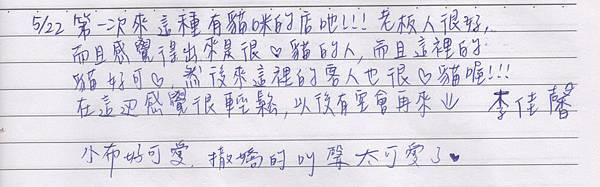 5/22 第一次來這種有貓咪的店吔!!! 老板人很好,
而且感覺得出來是很♡貓的人, 而且這裡的
貓好可♡, 然後來這裡的客人也很♡貓喔!!!
在這邊感覺很輕鬆, 以後有空會再來 李佳馨
小布好可愛, 撒嬌的叫聲太可愛了♥